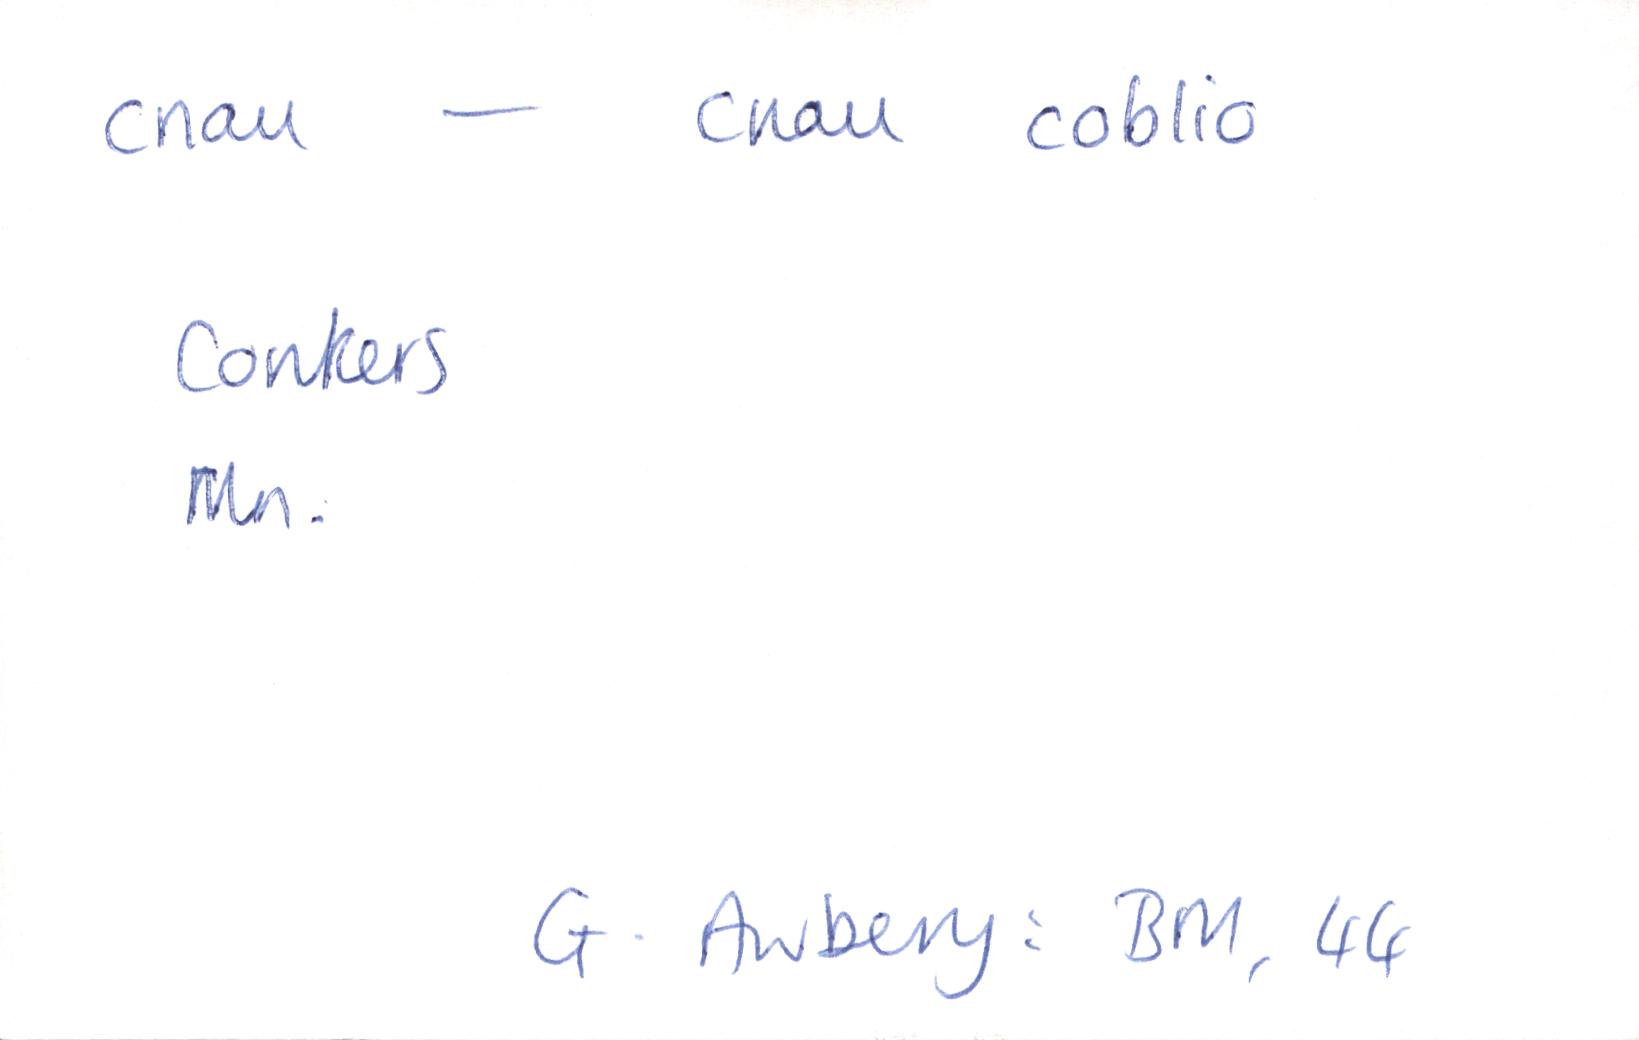 cnau — cnau coblio
Conkers
Mn.
G. Awbery: BM, 44